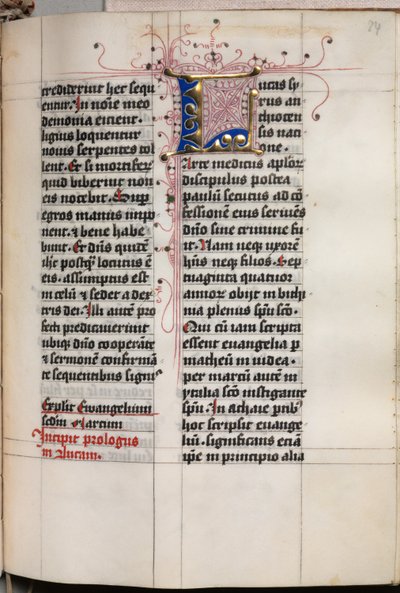 24
crediderint hec sequ
entur. In noīe meo
demonia eicient.
ligūis loquentur
nouis serpentes tol
lent. Et si mortiferū
quid biberint non
eis nocebit. Supꝑ
egros manus impo
nent. ⁊ bene habe
bunt. Et dn̄s quidē
ih̄c postqꝫ locutus ē
eis. assumptus est
in celū ⁊ sedet a dex
tris dei. Illi autē pro
fecti predicauerunt
ubiqꝫ dn̄o coopeꝛante
⁊ sermonē confirmā
te sequentibus signis
Explit Ewangelium
scdm Marcum
Incipit prologus
in Lucam.
Lucas sy
rus an
thiocen
sis nati
one.
Arte medicus apl̄oꝝ
discipulus postea
paulū secutus ad cō
fessionē eius seruiēs
dn̄o sine crimine fu
it. Nam neqꝫ uxorē
hūs neqꝫ filios. Sep
tuaginta quatuor
annoꝝ obijt in bithi
nia plenus spū sc̄o.
Qui cū iam scripta
essent euangelia ꝑ
matheū in iudea.
per marcū autē in
ytalia sc̄o instigante
spū. In achaie ptibꝫ
hoc scripsit euange
liū. significans eciā
ip̄e in principio alia